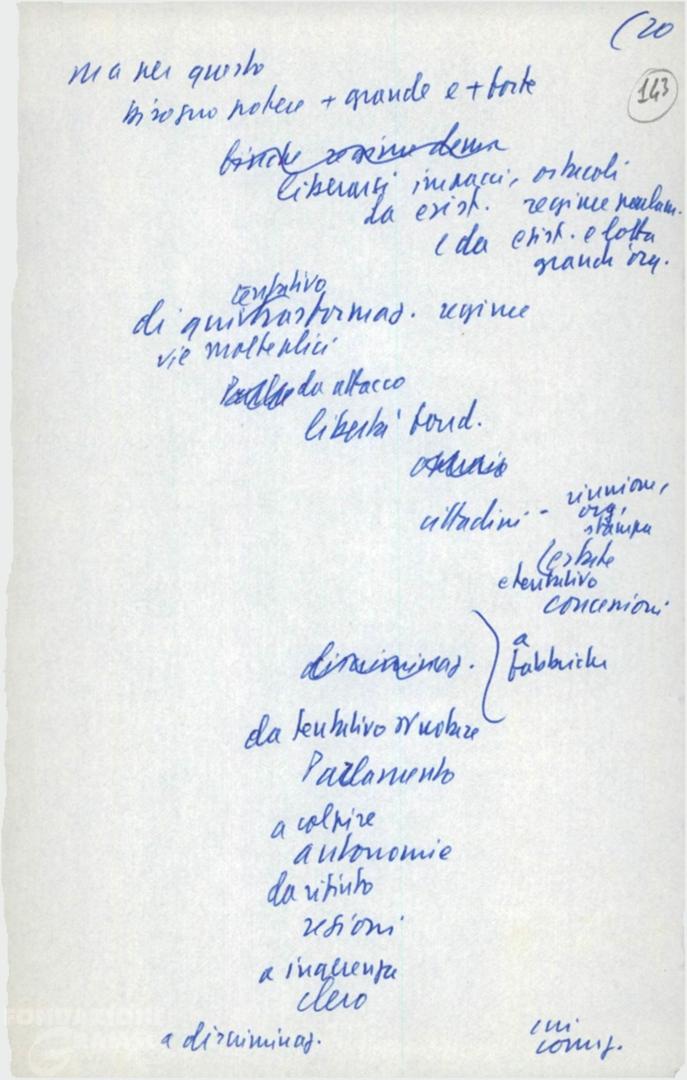 (20
143
ma per questo
bisogno potere + grande e + forte
liberarsi impacci, ostacoli
da esist. regime parlam.
e da esist. e lotta
grandi org.
tentativo
di qui trasformaz. regime
vie molteplici
da attacco
libertà fond.
operaio
cittadini - riunione,
org,
stampa
e tentativo
concessioni
discriminaz.
a
fabbriche
da tentativo svuotare
Parlamento
a colpire
autonomie
da rifiuto
regioni
a ingerenza
clero
a discriminaz.
FONDAZIONE
GRAMSCI